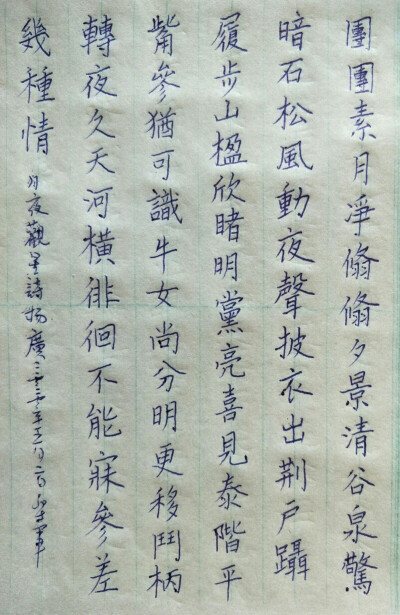 團團素月凈翛翛夕景清谷泉驚
暗石松風動夜聲披衣出荆戶躡
履步山楹欣睹明黨亮喜見泰階平
觜參猶可識牛女尚分明更移鬥柄
轉夜久天河橫徘徊不能寐參差
幾種情 月夜觀星詩楊廣